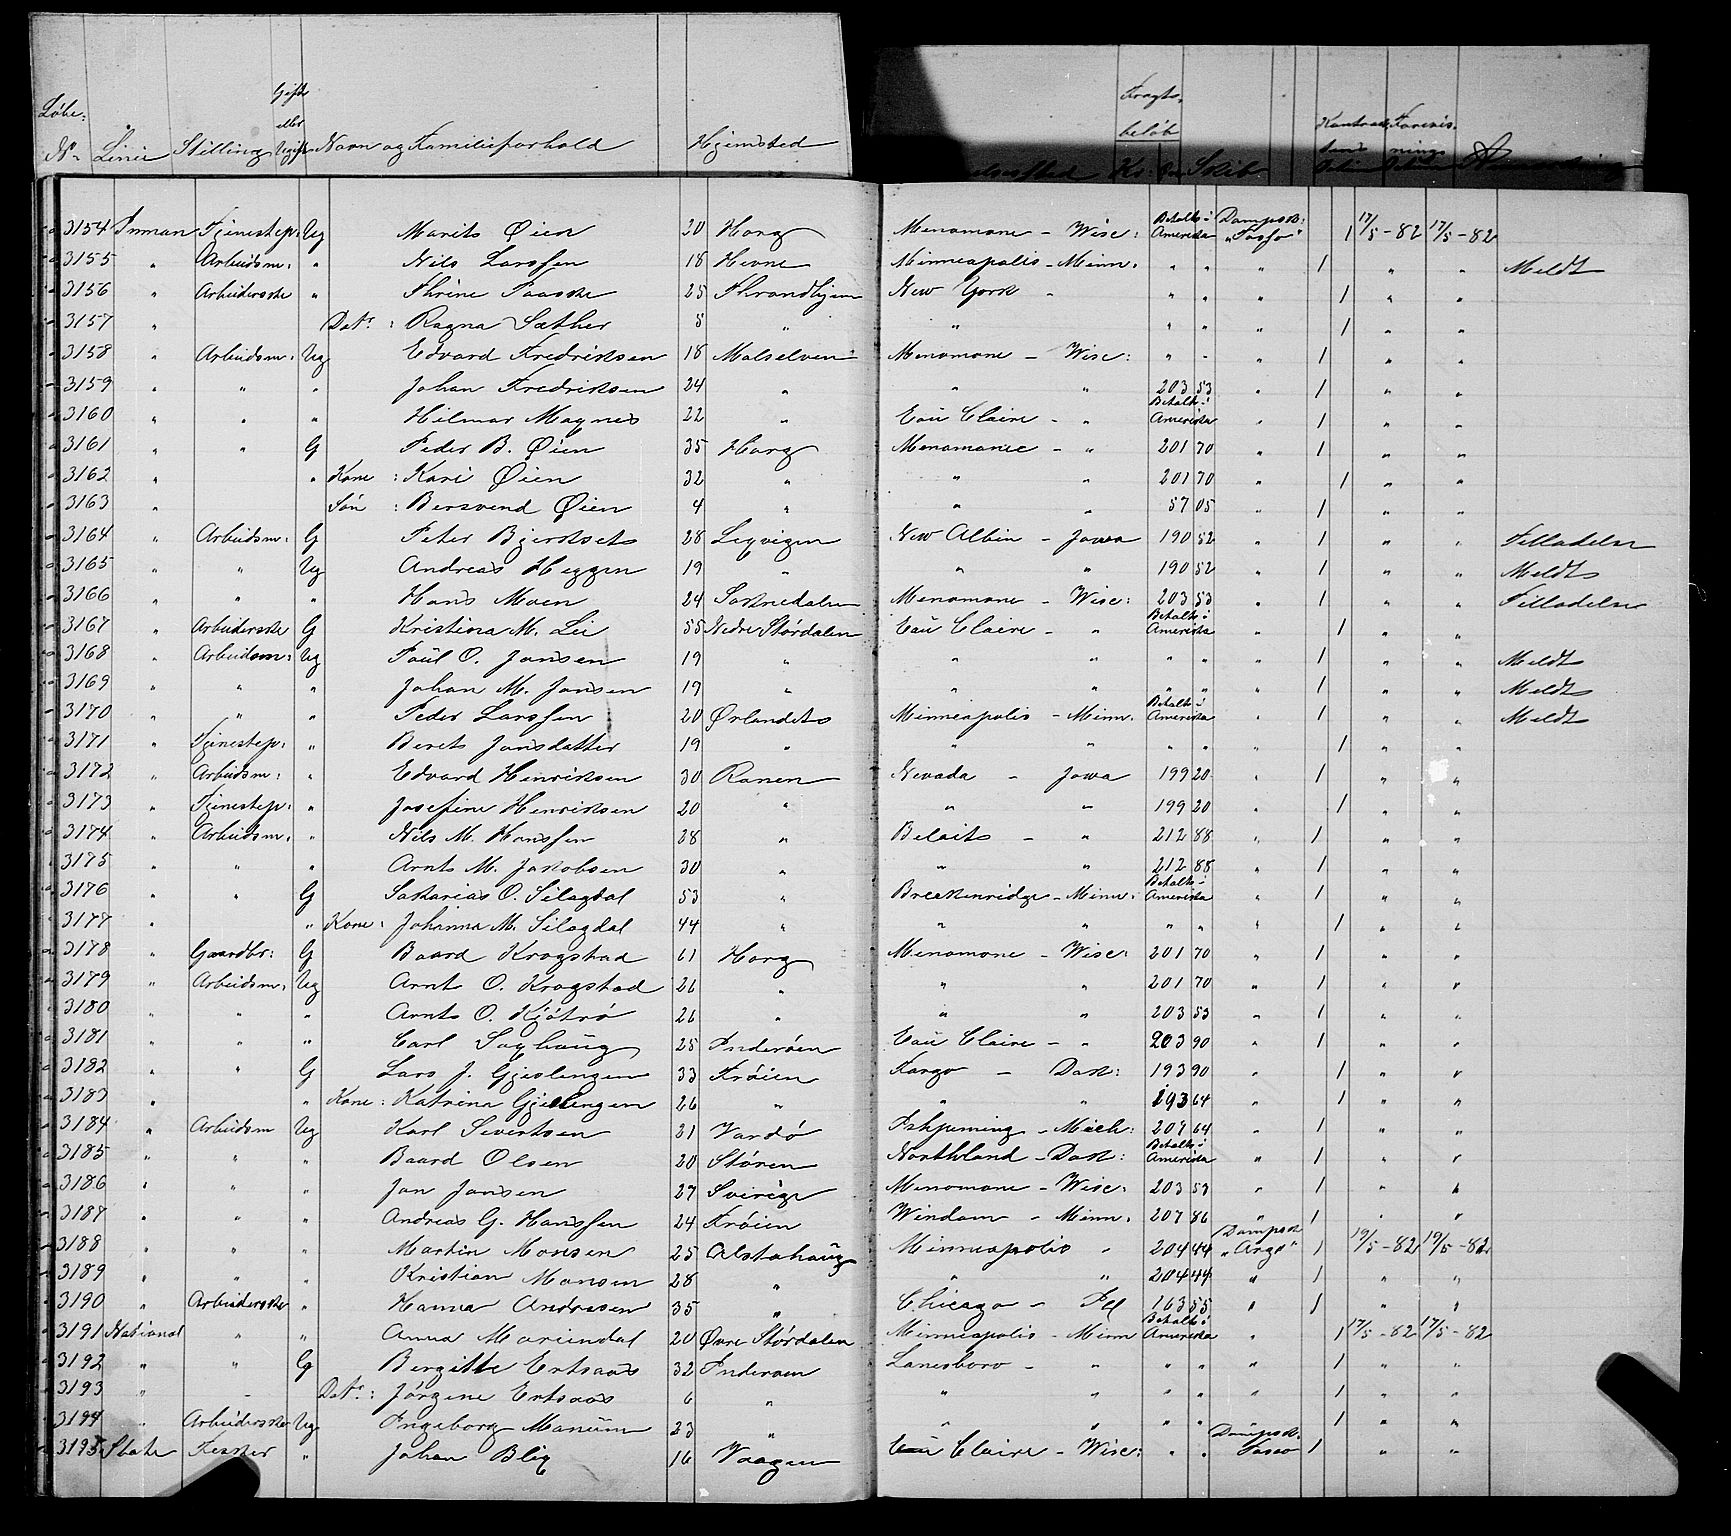 Løbe: N. Linie Stilling Gift eller Ugift Navn og Familieforhold Hjemsted Fragtbeløb Kr. Skib
3154 Inman Tjenestep: Ug Marits Øien 30 Horg Menomone - Wisc: Betalt i Amerika Dampsk: "Tasso" 1 17/5-82 17/5-82
3155 " Arbeidsm: " Nils Larssen 18 Hevne Minneapolis - Minn: " " " 1 " " Meldt
3156 " Arbeiderske " Thrine Paaske 25 Throndhjem New York - " " " 1 " "
3157 " Datr: Ragna Sæther 8 " " " " " 1 " "
3158 " Arbeidsm: Ug Edvard Fredriksen 18 Malselven Menomone - Wisc: " " " 1 " "
3159 " " " Johan Fredriksen 24 " " " 203 53 " 1 " "
3160 " " " Hilmar Magnes 22 " Eau Claire - " Betalt i Amerika " 1 " "
3161 " " G Peder B. Øien 35 Horg Menomonie - " 201 70 " 1 " "
3162 " " Kone: Kari Øien 32 " " " 201 70 " 1 " "
3163 " Søn: Bersvend Øien 4 " " " 57 05 " 1 " "
3164 " Arbeidsm: G Peter Bjerksets 28 Lexvigen New Albin - Jowa 190 52 " 1 " " Tilladelse
3165 " " Ug Andreas Heggen 19 " " " 190 52 " 1 " " Meldt
3166 " " " Hans Moen 24 Soknedalen Menomone - Wisc: 203 53 " 1 " " Tilladelse
3167 " Arbeiderske G Kristina M. Lie 55 Nedre Stördalen Eau Claire - " Betalt i Amerika " 1 " "
3168 " Arbeidsm: Ug Paul O. Jansen 19 " " " " " " 1 " " Meldt
3169 " " " Johan M. Jansen 19 " " " " " " 1 " " Meldt
3170 " " " Peder Larssen 20 Ørlandets Minneapolis - Minn: Betalt i Amerika " 1 " " Meldt
3171 " Tjenestep: " Berets Jonsdatter 19 " " " " " " 1 " "
3172 " Arbeidsm: " Edvard Henriksen 30 Ranen Nevada - Jowa 199 20 " 1 " "
3173 " Tjenestep: " Josefine Henriksen 20 " " " 199 20 " 1 " "
3174 " Arbeidsm: " Nils M. Hanssen 28 " Beloits - " 212 88 " 1 " "
3175 " " " Arnt M. Jakobsen 30 " " " 212 88 " 1 " "
3176 " " G Sakarias O. Silagdal 53 " Breakenridge - Minn: Betalt i Amerika " 1 " "
3177 " " Kone: Johanna M. Silagdal 44 " " " " " " 1 " "
3178 " Gaardbr: G Baard Krogstad 61 Horg Menomone - Wisc: 201 70 " 1 " "
3179 " Arbeidsm: Ug Arnt O. Krogstad 26 " " " 201 70 " 1 " "
3180 " " " Arnts O. Kjötrö 26 " " " 203 53 " 1 " "
3181 " " " Carl Saghaug 25 Inderöen Eau Claire - " 203 90 " 1 " "
3182 " " G Lars J. Gjeslingen 33 Fröien Fargo - Dak: 193 90 " 1 " "
3183 " " Kone: Katrina Gjeslingen 26 " " " 193 64 " 1 " "
3184 " Arbeidsm Ug Karl Sivertsen 21 Vardö Ishpeming - Mich: 207 64 " 1 " "
3185 " " " Baard Olsen 20 Stören Northland - Dak: Betalt i Amerika " 1 " "
3186 " " " Jon Jonsen 27 Sverige Menomone - Wisc: 203 53 " 1 " "
3187 " " " Andreas G. Hanssen 24 Fröien Windom - Minn: 207 86 " 1 " "
3188 " " " Martin Monsen 25 Alstahaug Minneapolis " 204 44 Dampsk "Argo" 1 19/5-82 19/5-82
3189 " " " Kristian Monsen 28 " " " 204 44 " 1 " "
3190 " Arbeiderske " Hanna Andresen 35 " Chicago - Ill 163 55 " 1 " "
3191 National " " Anna Mariendal 20 Øvre Stördalen Minneapolis - Minn Betalt i Amerika " 1 17/5-82 17/5-82
3192 " " G Bergitte Ertsaas 32 Inderøen Lanesboro - " " " " 1 " "
3193 " - Datr: Jörgine Ertsaas 6 " " " " " " 1 " "
3194 " Arbeiderske Ug Ingeborg Manum 23 " " " " " 1 " "
3195 State Fisker " Johan Blix 16 Vaagen Eau Claire - Wisc: " " Dampsk. Tasso 1 " "